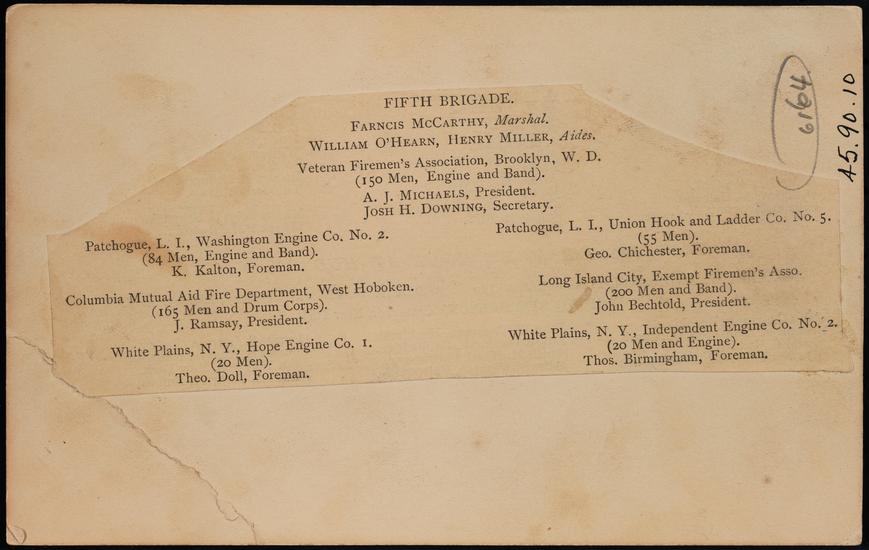 FIFTH BRIGADE.
FARNCIS MCCARTHY, Marshal.
WILLIAM O'HEARN, HENRY MILLER, Aides.
Veteran Firemen's Association, Brooklyn, W. D.
(150 Men, Engine and Band).
A. J. MICHAELS, President.
JOSH H. DOWNING, Secretary.
Patchogue, L. I., Washington Engine Co. No. 2.
(84 Men, Engine and Band).
K. Kalton, Foreman.
Columbia Mutual Aid Fire Department, West Hoboken.
(165 Men and Drum Corps).
J. Ramsay, President.
White Plains, N. Y., Hope Engine Co. 1.
(20 Men).
Theo. Doll, Foreman.
Patchogue, L. I., Union Hook and Ladder Co. No. 5.
(55 Men).
Geo. Chichester, Foreman.
Long Island City, Exempt Firemen's Asso.
(200 Men and Band).
John Bechtold, President.
White Plains, N. Y., Independent Engine Co. No. 2.
(20 Men and Engine).
Thos. Birmingham, Foreman.
6164
45.90.10